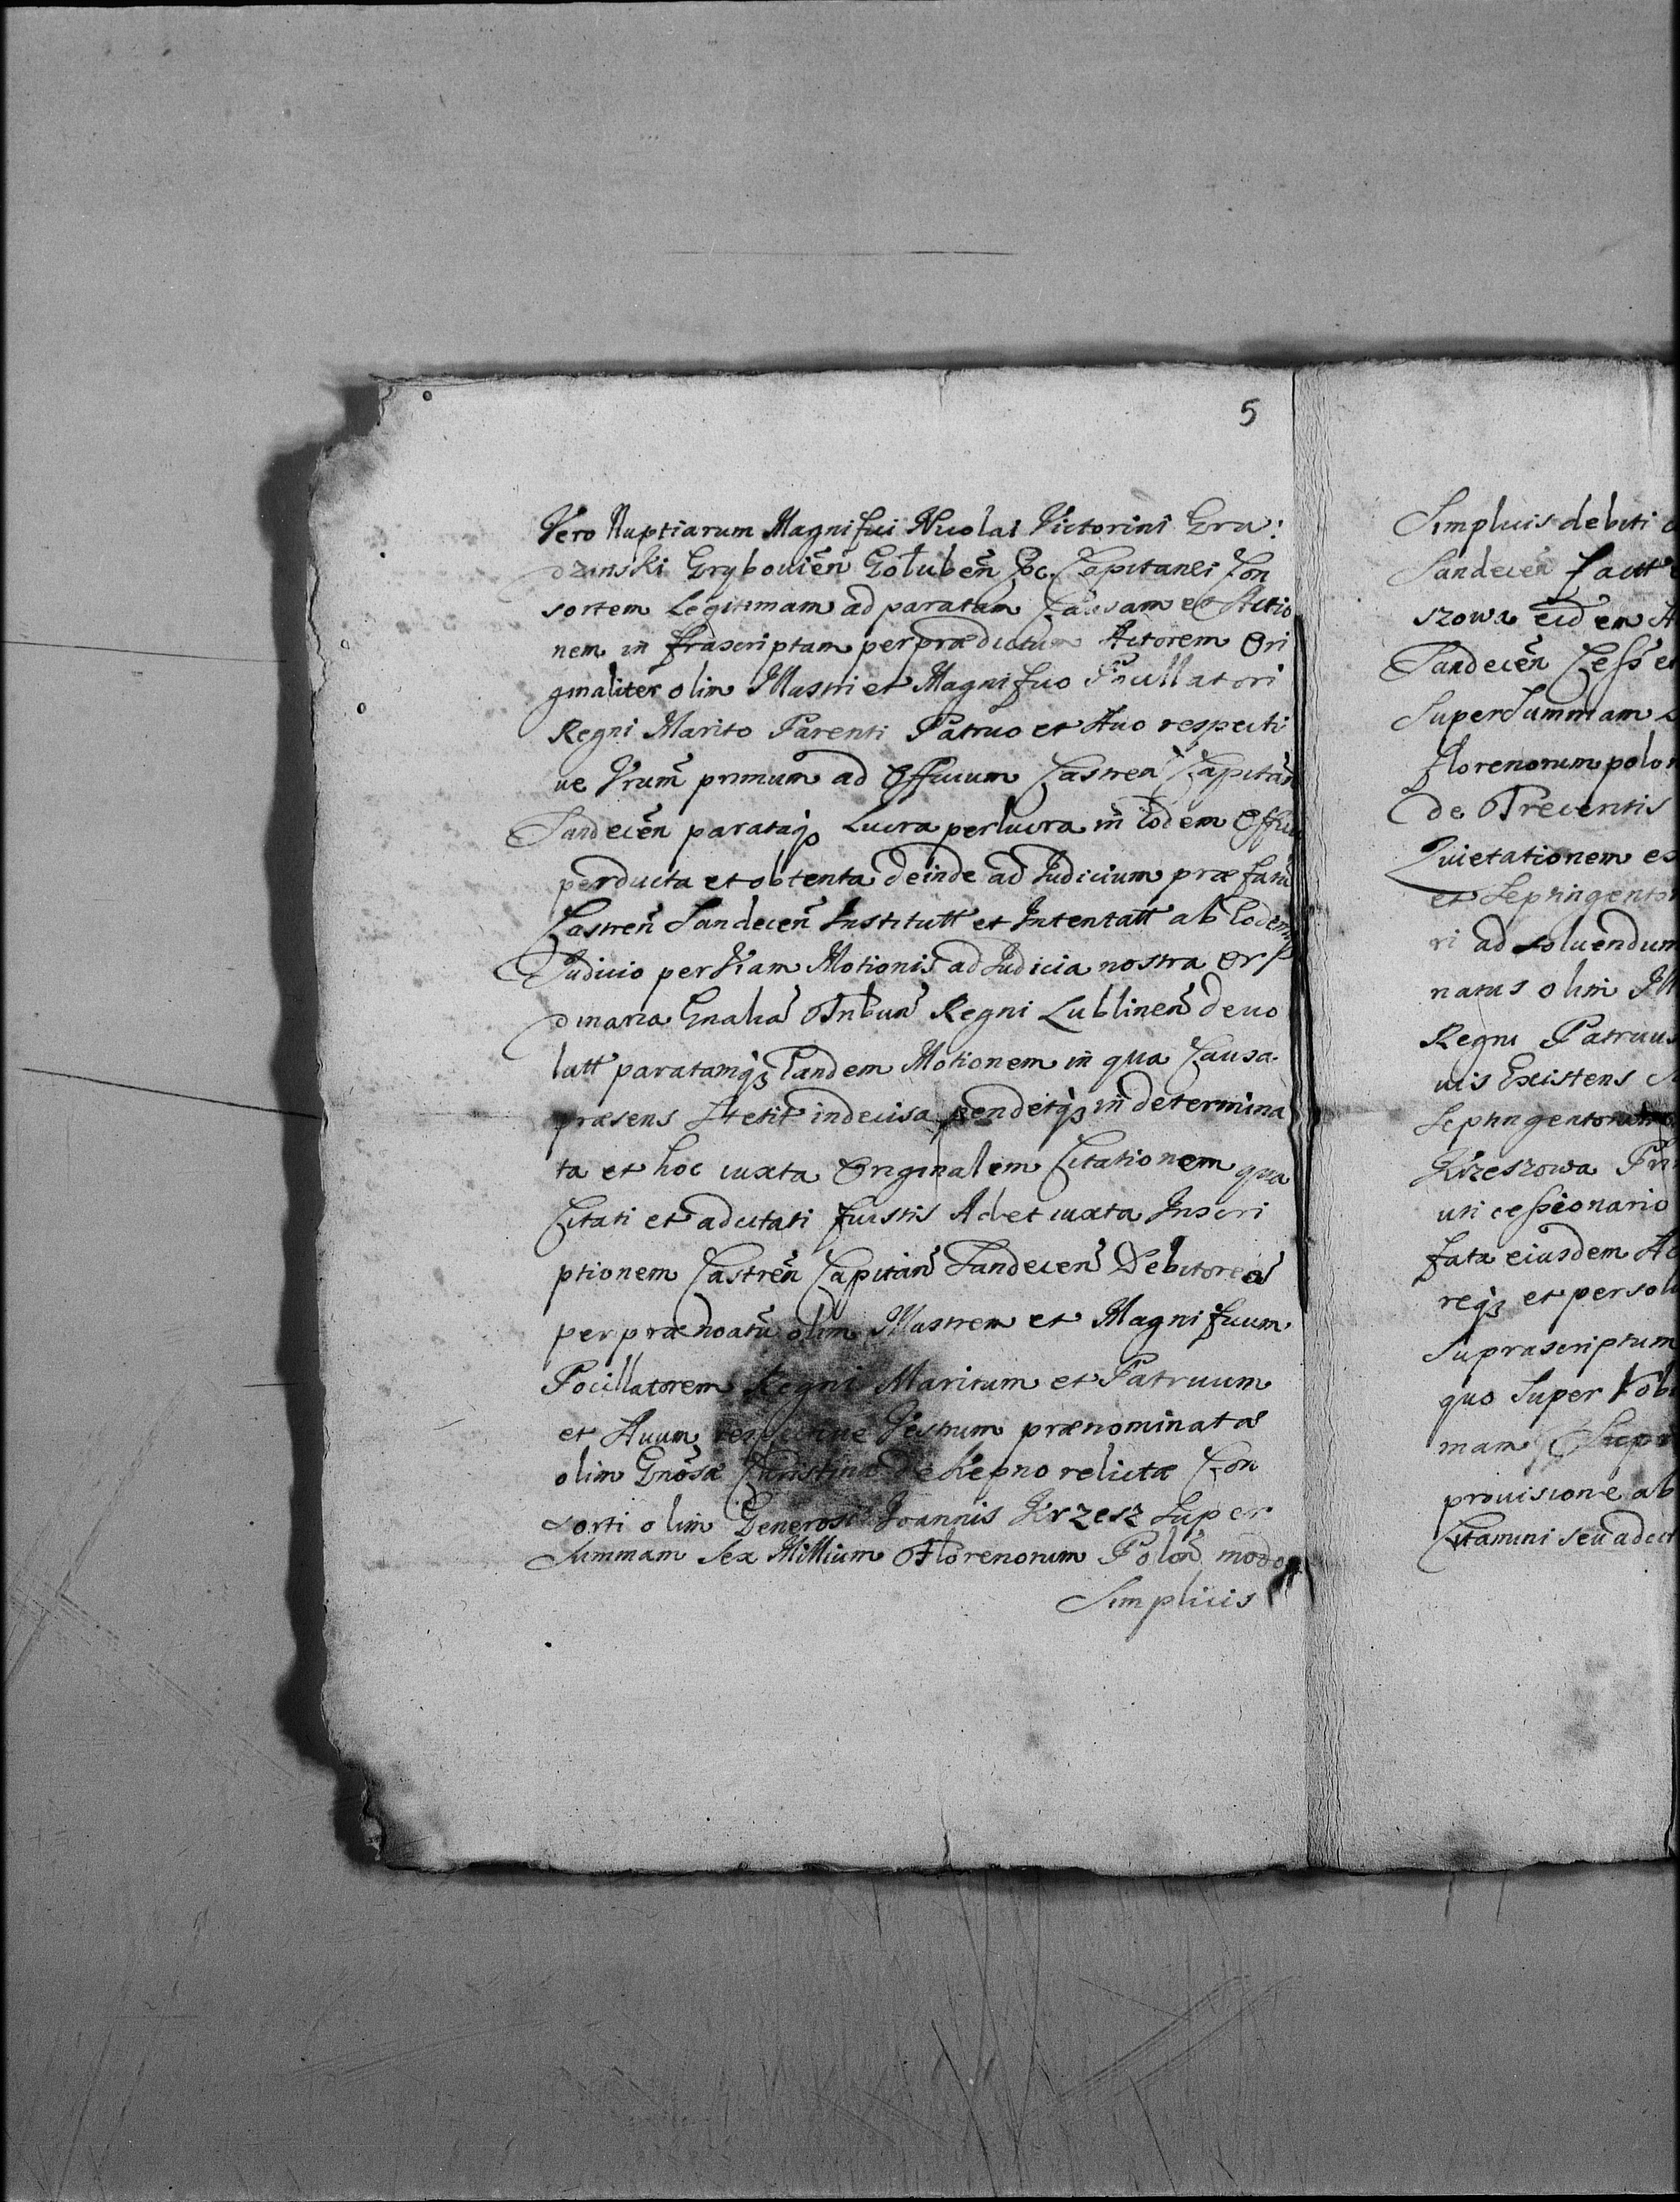 5
Vero Nuptiarum Magnifici Nicolai Victorini Gru:
dzinski Grybouien̄ Goluben̄ &c. Capitanei Con
sortem Legitimam ad paratam Causam et Actio
nem infrascriptam per prædictum Actorem Ori
ginaliter olim Illustri et Magnifico Pocillatori
Regni Marito Parenti Patruo et Auo respecti
ue Vrum̄ primum ad Officium Castren̄ Capitan̄
Sandecen̄ parataqꝫ Lucra per lucra in Eodem Officio
perducta et obtenta deinde ad Iudicium præfatū
Castren̄ Sandecen̄ Institutt et Intentatt ab Eodem
Iudicio per Viam Motionis ad Iudicia nostra Or
dinaria Gnalia Tribun̄ Regni Lublinen̄ deuo
lutt paratamqꝫ Tandem Motionem in qua Causa
præsens Stetit indecisa pendetqꝫ indetermina
ta et hoc iuxta Originalem Citationem qua
Citati et adcitati fuistis Ad et iuxta Inscri
ptionem Castren̄ Capitan̄ Sandecen̄ Debitorea͂
per prænoatū olim Illustrem et Magnificum
Pocillatorem Regni Maritum et Patruum
et Auum respectiue Vestrum prænominatæ
olim Gnōsæ Christinæ de Kępno relictæ Con
sorti olim Generosi Joannis Krzesz Super
Summam Sex Millium Florenorum Polon̄ modo
Simplicis
Simplicis debiti
Sandecen̄
szowa eidem
Sandecen̄
Super Summam
florenorum polon
de Trecentis
Quietationem
et Septingento
ri ad soluendum
natus olim Ill
Regni Patruus
uis Existens
Septingentorum
Krzeszowa
uti cessionario
fata eiusdem
reqꝫ et persol
Suprascriptum
quo Super Vob
mam
prouisione ab
Citamini seu adcit